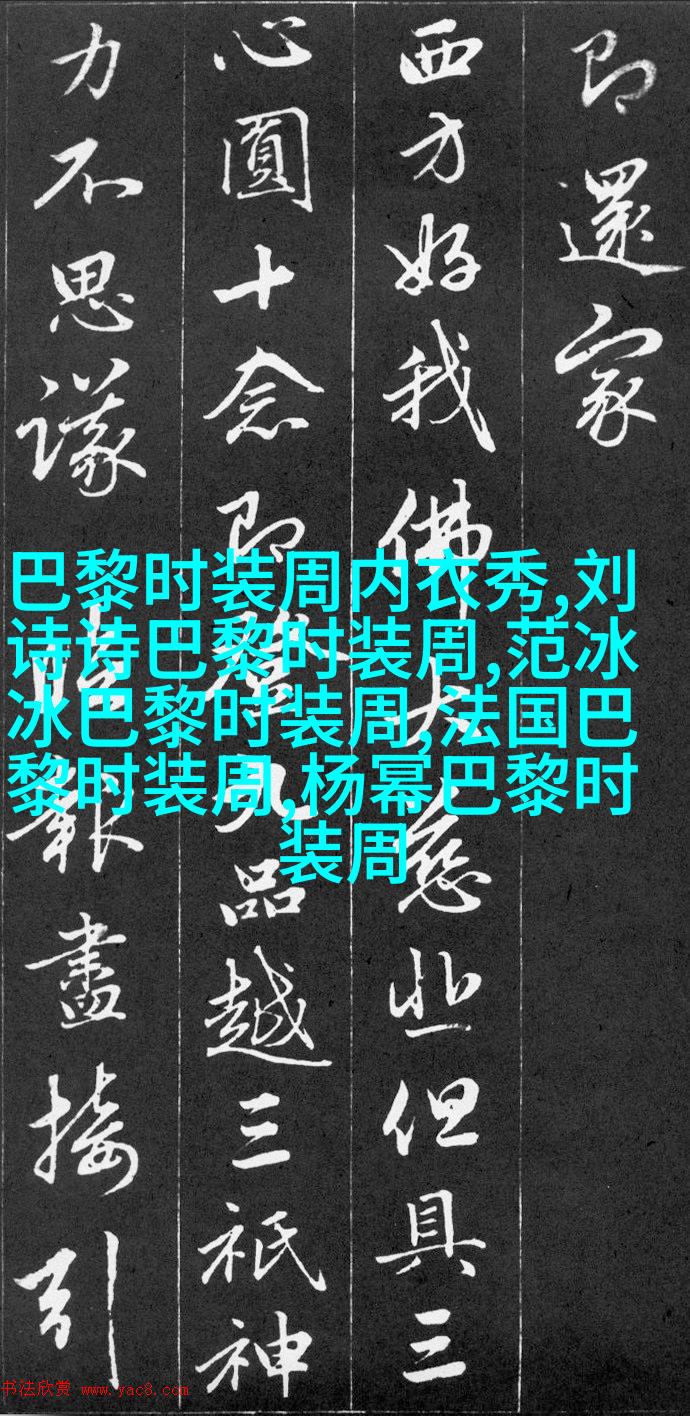 即還家
西方好我佛大慈悲但具三
心圓十念即登九品越三祇神
力不思議臨報盡接引
巴黎时装周内衣秀,刘
诗诗巴黎时装周,范冰
冰巴黎时装周,法国巴
黎时装周,杨幂巴黎时
装周
书法欣赏 www.yac8.com